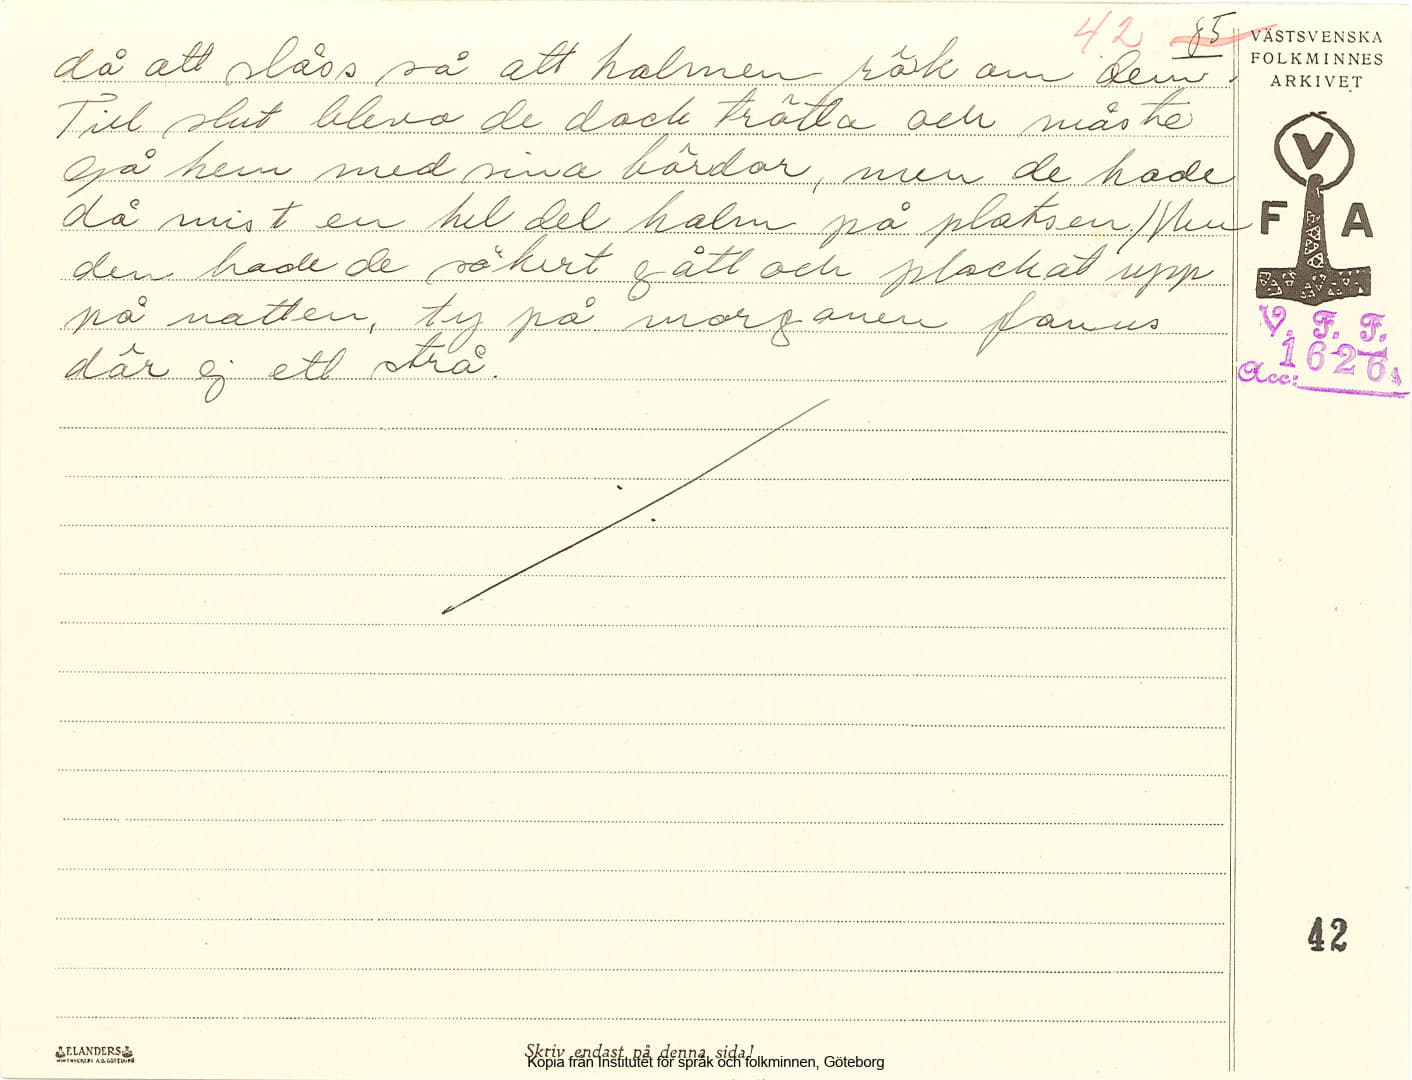 42 85
då att slåss så att halmen rök om dem.
Till slut blevo de dock trötta och måste
gå hem med sina bördor, men de hade
då mist en hel del halm på platsen. Men
den hade de säkert gått och plockat upp
på natten, ty på morgonen fanns
där ej ett strå.
VÄSTSVENSKA
FOLKMINNES
ARKIVET
V
F A
V. F. F.
Acc: 1626.
42
ELANDERS
Skriv endast på denna sida!
Kopia från Institutet för språk och folkminnen, Göteborg